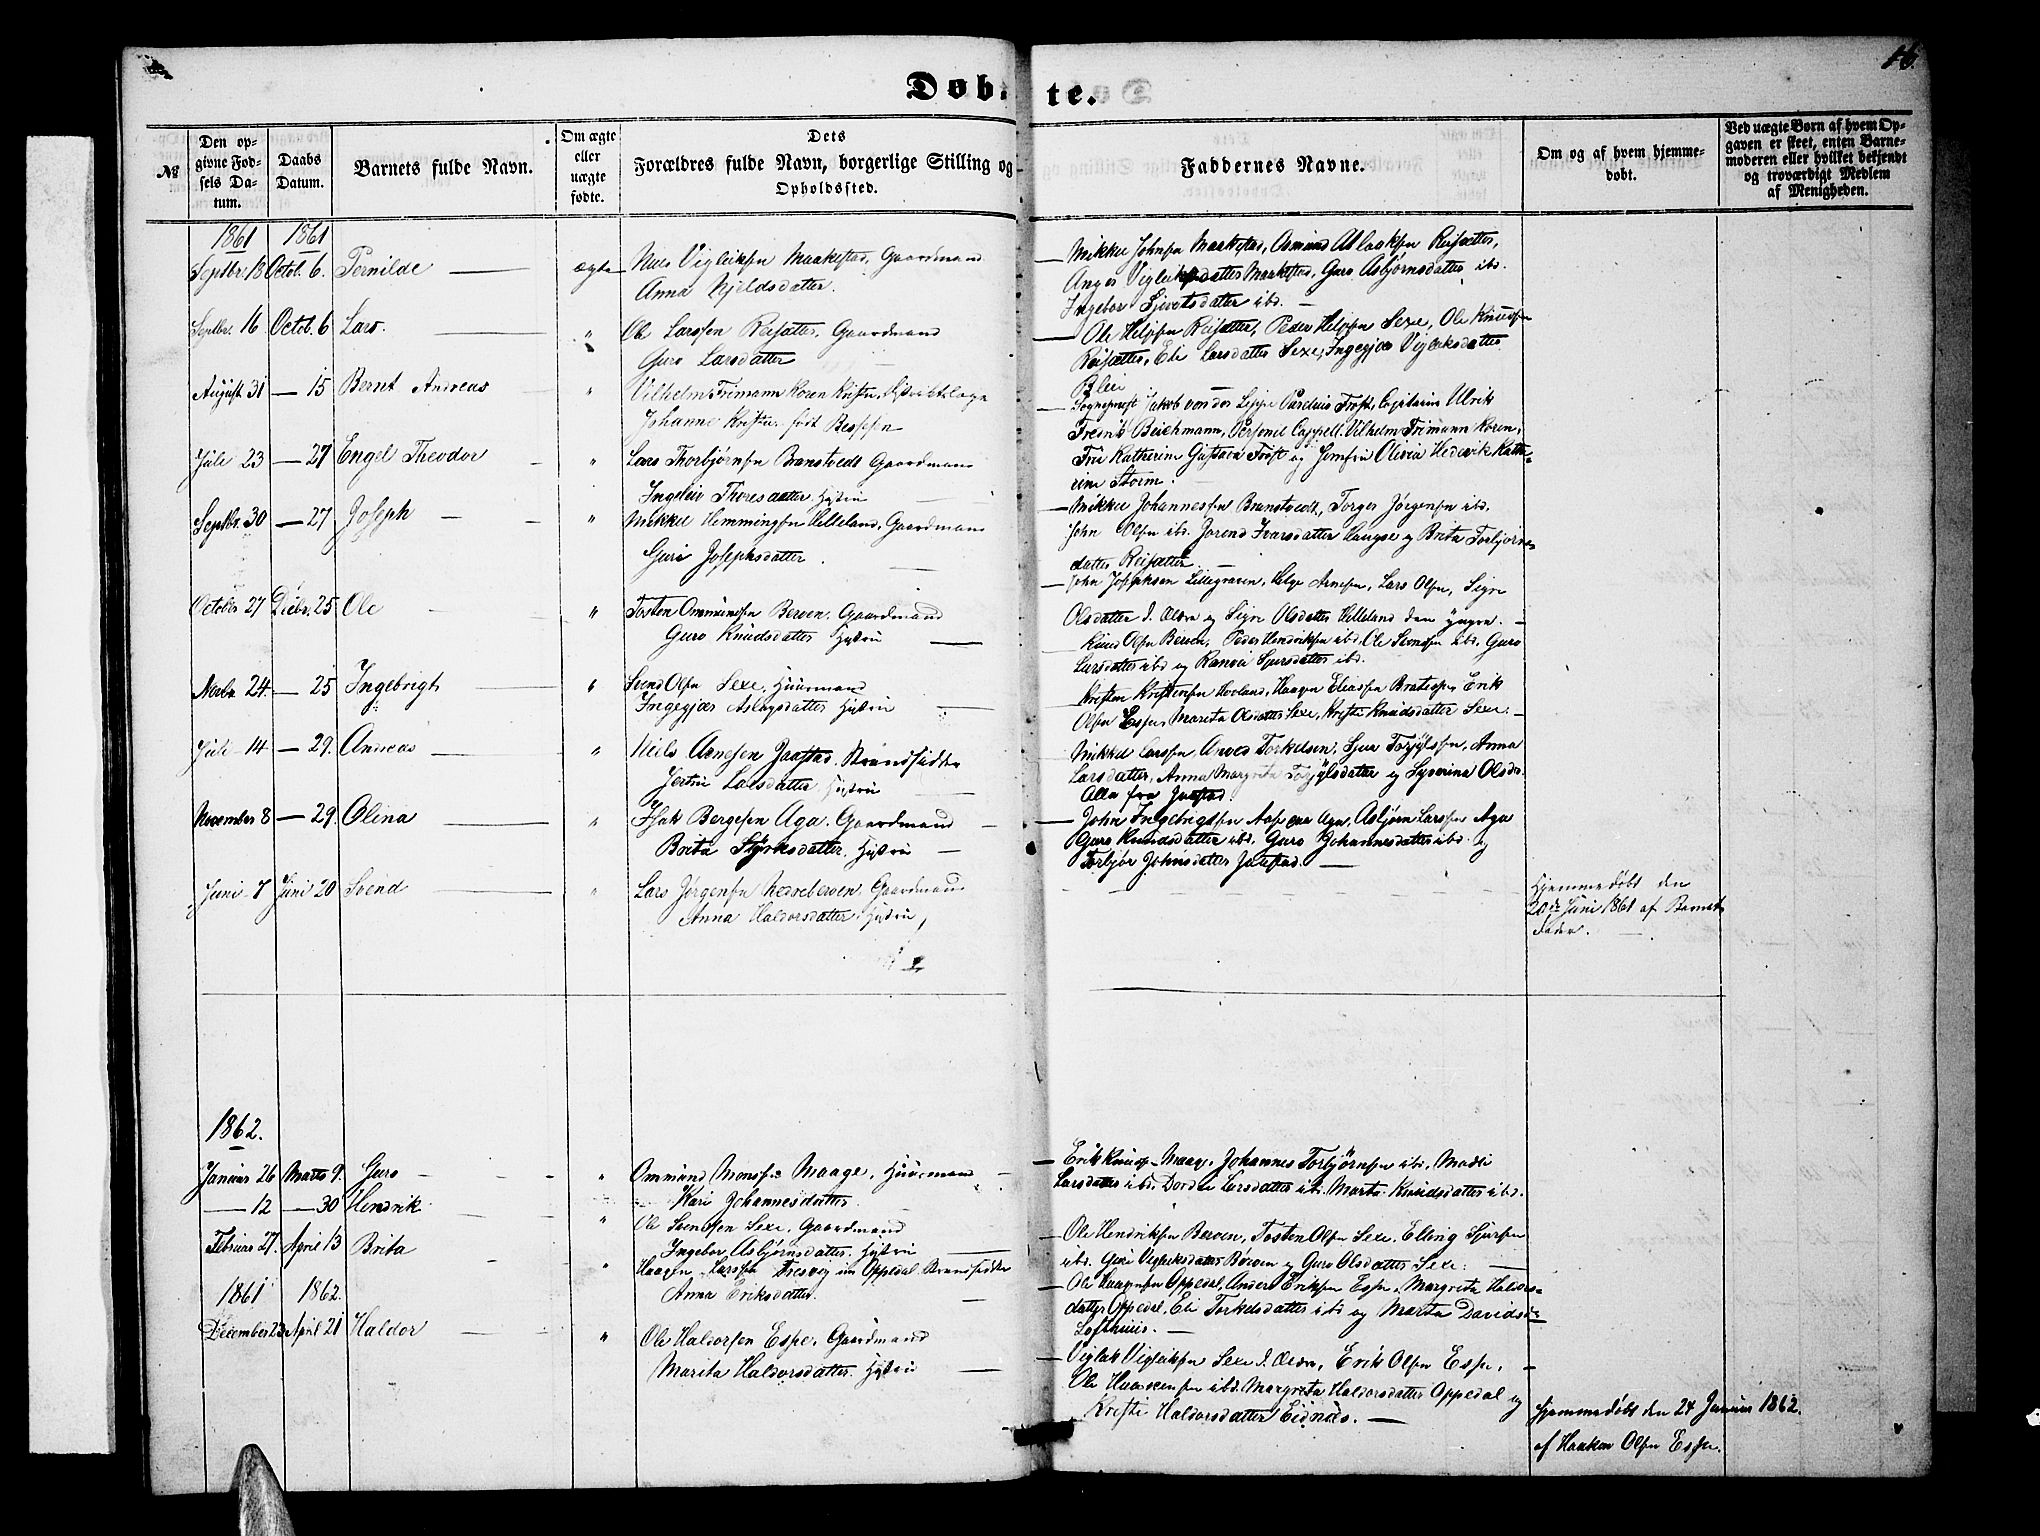 16.
Døbte.
№
Den opgivne Fødsels Datum.
Daabs Datum.
Barnets fulde Navn.
Om ægte eller uægte fødte.
Dets Forældres fulde Navn, borgerlige Stilling og Opholdssted.
Faddernes Navne.
Om og af hvem hjemmedøbt.
Ved uægte Børn af hvem Opgaven er skeet, enten Barnemoderen eller hvilket bekjendt og troværdigt Medlem af Menigheden.
1861 1861
Septbr. 18 Octob. 6. Pernilde ægte Niels Vigleiksen Maakestad, Gaardmand
Anna Kjeldsdatter.
Mikkel Johnsen Maakestad, Asmund Aslaksen Reisæter,
Anger Vigleiksdatter Maakestad, Guro Asbjørnsdatter ibd.
Ingebor Sjovatsdatter ibd.
Septbr. 16 Octob. 6 Lars. " Ole Larssen Reisæter, Gaardmand
Guro Larsdatter
Ole Helgesen Reisæter, Peder Helgesen Sexe, Ole Knudsen
Reisæter, Eli Larsdatter Sexe, Ingegjer Vigleiksdatter
Bleie
August 31 — 15 Bernt Andreas " Vilhelm Frimann Koren
Johanne født
Sognepræst Jakob von der Lippe Parelius Frost, Capitain Ulrik
Fredrik Beichmann, Personel Cappell. Vilhelm Frimann Koren,
Fru Katherine Gustava Frost og Jomfru Olivia Hedevik Kathe-
rine Storm.
Juli 23 — 27 Engel Theodor " Lars Thorbjørnsen Branstvedt Gaardmand
Ingeleiv Thoresdatter. Hustru
Mikkel Johannessen Branstvedt, Torger Jørgensen ibd.
John Olsen ibd. Jorend Ivarsdatter Haugse og Brita Torbjørns-
datter Reisæter.
Septbr. 30 — 27 Joseph " Mikkel Hemmingsen Helleland, Gaardmand
Guri Josephsdatter.
John Josephsen Lillegraven, Helge Arnesen, Lars Olsen, Signe
Olsdatter d. Ældre og Signe Olsdatter Helleland den yngre.
October 27 Decbr. 25 Ole " Tosten Ommundsen Berven, Gaardmand
Guro Knudsdatter Hustru
Knud Olsen Berven, Peder Hendriksen ibd. Ole Svendsen ibd. Guro
Larsdatter ibd og Ranvei Sjursdatter ibd.
Novbr 24 — 25 Ingebrigt " Svend Olsen Sexe, Huusmand
Ingegjer Aslagsdatter Hustru
Kristen Kristensen Hovland, Haagen Eliassen Bratespe, Erik
Olsen Espe, Marita Olsdatter Sexe, Kristi Knudsdatter Sexe.
Juli 14 — 29. Andreas " Niels Arnesen Jaastad. Strandsidder
Jertru Larsdatter Hustru
Mikkel Larssen, Arved Torkelsen, Sjur Torgjilssen, Anna
Larsdatter, Anna Margreta Torgjilsdatter og Syverina Olsdr.
Alle fra Jaastad.
November 8 — 29. Olina " Isak Bergesen Aga. Gaardmand
Brita Styrksdatter. Hustru
John Ingebrigtsen Aase paa Aga, Asbjørn Larssen Aga
Guro Knudsdatter ibd, Guro Johannesdatter ibd. og
Torbjør Johnsdatter Jaastad.
Juni 7 Juni 20 Svend " Lars Jørgensen Nedreberven, Gaardmand
Anna Haldorsdatter Hustru,
Hjemmedøbt den
20de Juni 1861 af Barnets
Fader.
1862.
Januar 26 Marts 9. Guro " Ommund Monsen Maage, Huusmand
Kari Johannesdatter
Erik Knudsen Maage, Johannes Torbjørnsen ibd, Madli
Larsdatter ibd. Dordei Larsdatter ibd. Marta Knudsdatter ibd.
— 12 — 30 Hendrik " Ole Svendsen Sexe. Gaardmand
Ingebor Asbjørnsdatter. Hustru
Ole Hendriksen Berven, Tosten Olsen Sexe, Elling Sjursen
ibd. Guri Vigleiksdatter Berven og Guro Olsdatter Sexe.
Februar 27. April 13 Brita " Haagen Larssen Tresvig Oppedal Strandsidder
Anna Eriksdatter.
Ole Haagensen Oppedal, Anders Eriksen Espe, Margreta Haldors-
datter Oppedal, Eli Torkelsdatter ibd og Marta Davidsdr
Lofthuus.
1861 1862.
December 23 April 21 Haldor " Ole Haldorsen Espe, Gaardmand
Marita Haldorsdatter. Hustru
Viglak Vigleiksen Sexe d. Ældre, Erik Olsen Espe,
Ole Haakensen ibd. Margreta Haldorsdatter Oppedal og
Kristi Haldorsdatter Eidnæs.
Hjemmedøbt den 24 Januar 1862.
af Haaken Olsen Espe.